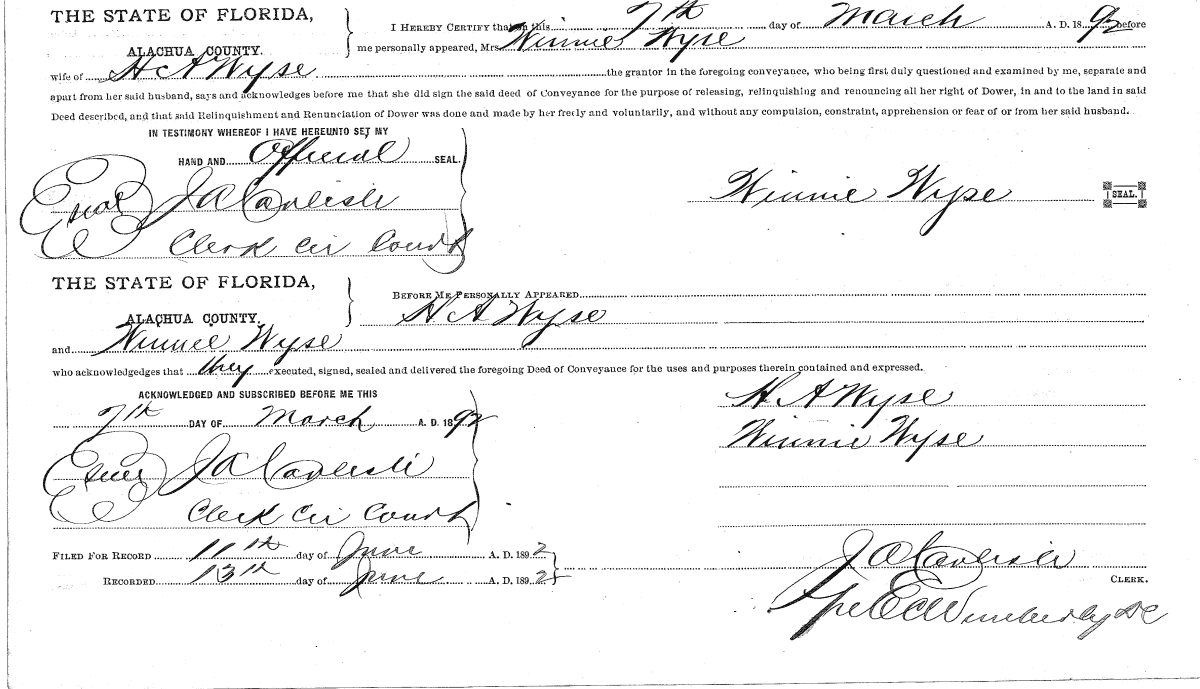 THE STATE OF FLORIDA,
ALACHUA COUNTY.
I HEREBY CERTIFY that on this 7th day of March A. D. 1892 before
me personally appeared, Mrs. Winnie Wyse
wife of H A Wyse the grantor in the foregoing conveyance, who being first duly questioned and examined by me, separate and
apart from her said husband, says and acknowledges before me that she did sign the said deed of Conveyance for the purpose of releasing, relinquishing and renouncing all her right of Dower, in and to the land in said
Deed described, and that said Relinquishment and Renunciation of Dower was done and made by her freely and voluntarily, and without any compulsion, constraint, apprehension or fear of or from her said husband.
IN TESTIMONY WHEREOF I HAVE HEREUNTO SET MY
HAND AND Official SEAL.
Seal J A Carlisle
Clerk Cir Court
Winnie Wyse SEAL.
THE STATE OF FLORIDA,
ALACHUA COUNTY.
BEFORE ME PERSONALLY APPEARED
H A Wyse
and Winnie Wyse
who acknowledgedges that they executed, signed, sealed and delivered the foregoing Deed of Conveyance for the uses and purposes therein contained and expressed.
ACKNOWLEDGED AND SUBSCRIBED BEFORE ME THIS
7th DAY OF March A. D. 1892
Seal J A Carlisle
Clerk Cir Court
H A Wyse
Winnie Wyse
FILED FOR RECORD 11th day of June A. D. 1892
RECORDED 13th day of June A. D. 1892
J A Carlisle
CLERK.
per E C Wimberly DC